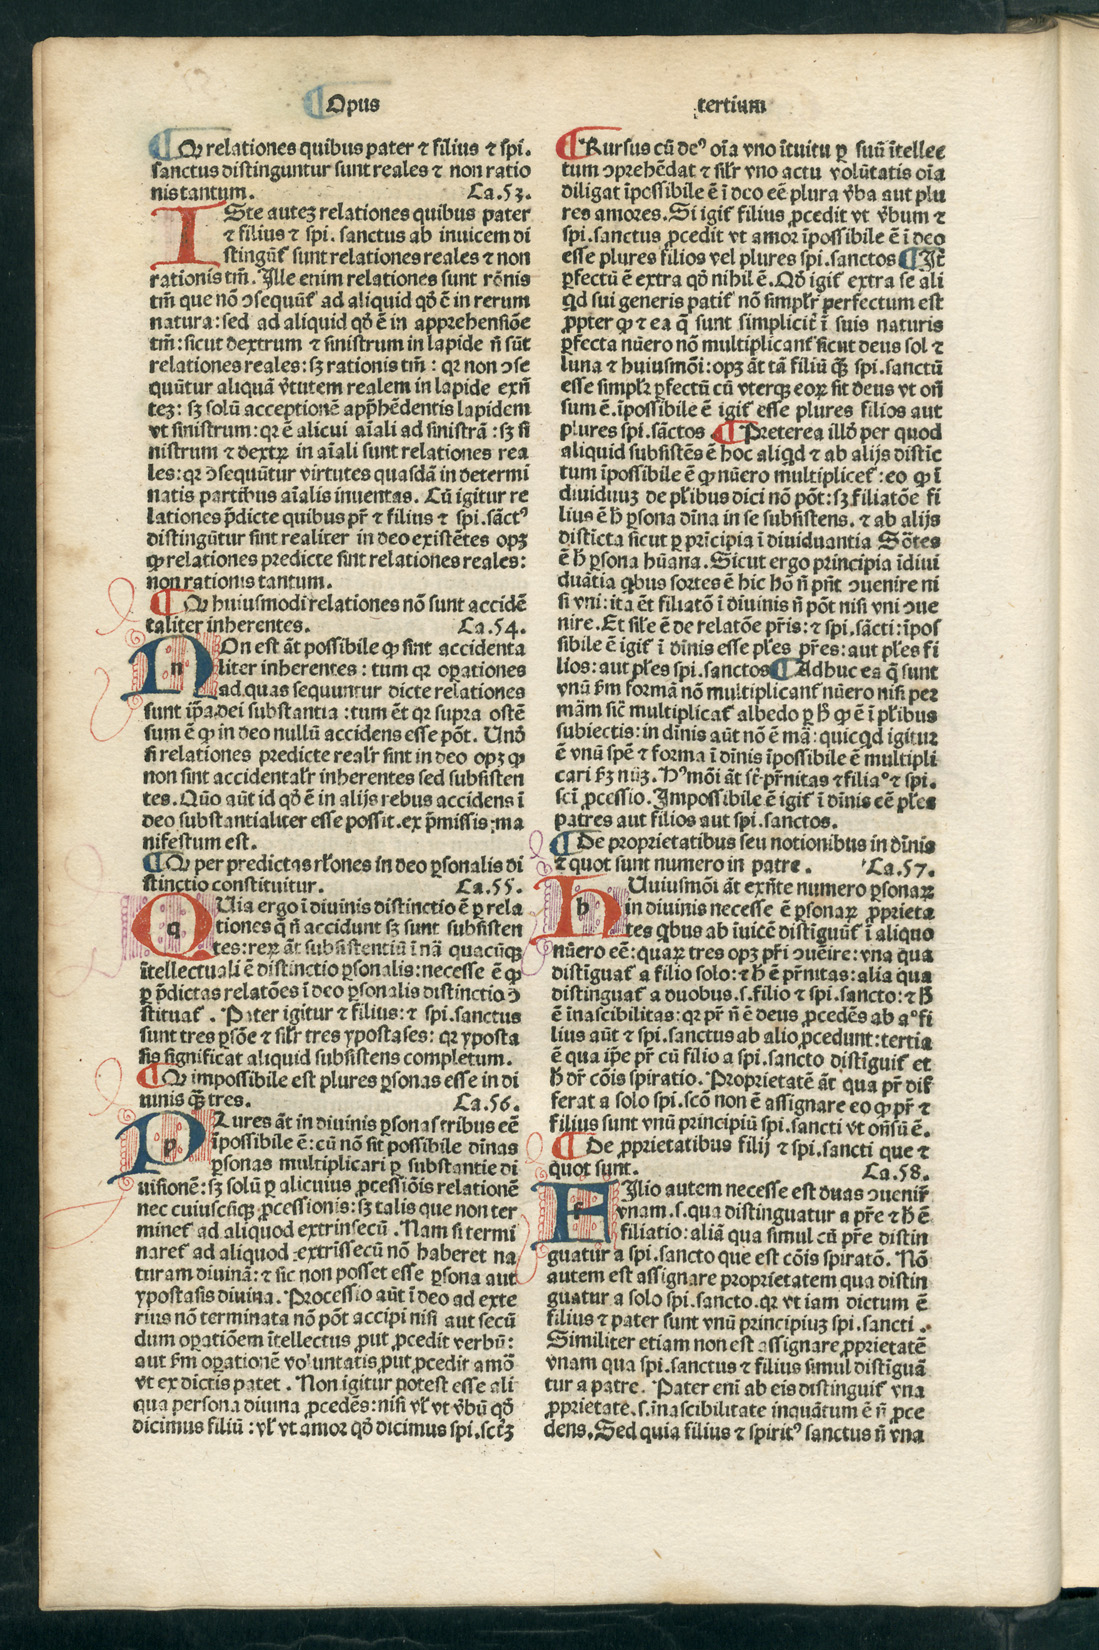 ¶Opus tertium
¶Qꝙ relationes quibus pater ⁊ filius ⁊ spi.
sanctus distinguntur sunt reales ⁊ non ratio
nis tantum. Ca.53.
ISte autez relationes quibus pater
⁊ filius ⁊ spi. sanctus ab inuicem di
stingūt sunt relationes reales ⁊ non
rationis tm̄. Ille enim relationes sunt rōnis
tm̄ que nō ↄsequūt ad aliquid qḋ ē in rerum
natura: sed ad aliquid qḋ ē in apprehensiōe
tm̄: sicut dextrum ⁊ sinistrum in lapide n̄ sūt
relationes reales: sꝫ rationis tm̄: qꝛ non ↄse
quūtur aliquā v̄tutem realem in lapide exn̄
tez: sꝫ solū acceptionē app̄hēdentis lapidem
vt sinistrum: qꝛ ē alicui aīali ad sinistrā: sꝫ si
nistrum ⁊ dextꝝ in aīali sunt relationes rea
les: qꝛ ↄsequūtur virtutes quasdā in determi
natis partibus aīalis inuentas. Cū igitur re
lationes p̄dicte quibus pr̄ ⁊ filius ⁊ spi.sāctꝰ
distingūtur sint realiter in deo existētes opꝫ
ꝙ relationes predicte sint relationes reales:
non rationis tantum.
¶Qꝙ huiusmodi relationes nō sunt accidē
taliter inherentes. Ca.54.
NOn est āt possibile ꝙ sint accidenta
liter inherentes: tum qꝛ oꝑationes
ad quas sequuntur dicte relationes
sunt ip̄a dei substantia: tum ēt qꝛ supra ostē
sum ē ꝙ in deo nullū accidens esse pōt. Unḋ
si relationes predicte realr̄ sint in deo opꝫ ꝙ
non sint accidentalr̄ inherentes sed subsisten
tes. Quō aūt id qḋ ē in alijs rebus accidens ī
deo substantialiter esse possit. ex p̄missis ma
nifestum est.
¶Qꝙ per predictas rl̄ones in deo ꝑsonalis di
stinctio constituitur. Ca.55.
QUia ergo ī diuinis distinctio ē ꝑ rela
tiones q̄ n̄ accidunt sꝫ sunt subsisten
tes: reꝝ āt subsistentiū ī nā quacūqꝫ
ītellectuali ē distinctio ꝑsonalis: necesse ē ꝙ
ꝑ p̄dictas relatōes ī deo ꝑsonalis distinctio ↄ
stituat̄. Pater igitur ⁊ filius: ⁊ spi.sanctus
sunt tres ꝑsōe ⁊ silr̄ tres ypostases: qꝛ yposta
sis significat aliquid subsistens completum.
¶Qꝙ impossibile est plures ꝑsonas esse in di
uinis qꝫ̄ tres. Ca.56.
PLures āt in diuinis ꝑsonas tribus eē
īpossibile ē: cū nō sit possibile dīnas
ꝑsonas multiplicari ꝑ substantie di
uisionē: sꝫ solū ꝑ alicuius ꝓcessiōis relationē
nec cuiuscūqꝫ ꝓcessionis: sꝫ talis que non ter
minet̄ ad aliquod extrinsecū. Nam si termi
naret̄ ad aliquod extrissecū nō haberet na
turam diuinā: ⁊ sic non posset esse ꝑsona aut
ypostasis diuina. Processio aūt ī deo ad exte
rius nō terminata nō pōt accipi nisi aut secū
dum oꝑatiōem ītellectus ꝓut ꝓcedit verbū:
aut ẜm oꝑationē voluntatis ꝓut ꝓcedit amō
vt ex dictis patet. Non igitur potest esse ali
qua persona diuina ꝓcedēs: nisi vl̄ vt v̄bū qḋ
dicimus filiū: vl̄ vt amor qḋ dicimus spi.sctꝫ
¶Rursus cū deꝰ oīa vno ītuitu ꝑ suū ītellec
tum ↄprehēdat ⁊ silr̄ vno actu volūtatis oīa
diligat īpossibile ē ī deo eē plura v̄ba aut plu
res amores. Si igit̄ filius ꝓcedit vt v̄bum ⁊
spi.sanctus ꝓcedit vt amor īpossibile ē ī deo
esse plures filios vel plures spi.sanctos ¶It̄
ꝑfectū ē extra qḋ nihil ē. Qḋ igit̄ extra se ali
qd sui generis patit̄ nō simplr̄ perfectum est
ꝓpter ꝙ ⁊ ea q̄ sunt simplicit̄ ī suis naturis
ꝑfecta nūero nō multiplicant̄ sicut deus sol ⁊
luna ⁊ huiusmōi: opꝫ āt tā filiū qꝫ̄ spi.sanctū
esse simplr̄ ꝑfectū cū vterqꝫ eoꝝ sit deus vt on̄
sum ē. īpossibile ē igit̄ esse plures filios aut
plures spi.sāctos ¶Preterea illḋ per quod
aliquid subsistēs ē hoc aliqd ⁊ ab alijs distīc
tum īpossibile ē ꝙ nūero multiplicet̄: eo ꝙ ī
diuiduuꝫ de pl̄ibus dici nō pōt: sꝫ filiatōe fi
lius ē h̄ ꝑsona dīna in se subsistens. ⁊ ab alijs
distīcta sicut ꝑ prīcipia īdiuiduantia Sōtes
ē h̄ ꝑsona hūana. Sicut ergo principia īdiui
duātia qbus sortes ē hic hō n̄ pn̄t ↄuenire ni
si vni: ita ēt filiatō ī diuinis n̄ pōt nisi vni ↄue
nire. Et sil̄e ē de relatōe pr̄is: ⁊ spi.sācti: īpos
sibile ē igit̄ ī dīnis esse pl̄es pr̄es: aut pl̄es fi
lios: aut pl̄es spi.sanctos ¶Adhuc ea q̄ sunt
vnū ẜm formā nō multiplicant̄ nūero nisi per
mām sic̄ multiplicat̄ albedo ꝑ h̄ ꝙ ē ī pl̄ibus
subiectis: in dīnis aūt nō ē mā: quicqd igitur
ē vnū spē ⁊ forma ī dīnis īpossibile ē multipli
cari ẜꝫ nūꝫ. Hꝰmōi āt st̄ pr̄nitas ⁊ filiaᵒ ⁊ spi.
scī ꝓcessio. Impossibile ē igit̄ ī dīnis eē pl̄es
patres aut filios aut spi.sanctos.
¶De proprietatibus seu notionibus in dīnis
⁊ quot sunt numero in patre. Ca.57.
HUuiusmōi āt exn̄te numero ꝑsonaꝝ
in diuinis necesse ē ꝑsonaꝝ ꝓprieta
tes qbus ab īuicē distiguūt̄ ī aliquo
nūero eē: quaꝝ tres opꝫ pr̄i ↄuēire: vna qua
distīguat̄ a filio solo: ⁊ h̄ ē pr̄nitas: alia qua
distinguat̄ a duobus.s.filio ⁊ spi.sancto: ⁊ h̄
ē īnascibilitas: qꝛ pr̄ n̄ ē deus ꝓcedēs ab aᵒ fi
lius aūt ⁊ spi.sanctus ab alio ꝓcedunt: tertia
ē qua ip̄e pr̄ cū filio a spi.sancto distiguit̄ et
h̄ dr̄ cōis spiratio. Proprietatē āt qua pr̄ dif
ferat a solo spi.scō non ē assignare eo ꝙ pr̄ ⁊
filius sunt vnū principiū spi.sancti vt on̄sū ē.
¶De ꝓprietatibus filij ⁊ spi.sancti que ⁊
quot sunt. Ca.58.
FIlio autem necesse est duas ↄuenir̄
vnam.s.qua distinguatur a pr̄e ⁊ h̄ ē
filiatio: aliā qua simul cū pr̄e distin
guatur a spi.sancto que est cōis spiratō. Nō
autem est assignare proprietatem qua distin
guatur a solo spi.sancto. qꝛ vt iam dictum ē
filius ⁊ pater sunt vnū principiuꝫ spi.sancti.
Similiter etiam non est assignare ꝓprietatē
vnam qua spi.sanctus ⁊ filius simul distiguā
tur a patre. Pater enī ab eis distinguit̄ vna
ꝓprietate.s.īnascibilitate inquātum ē n̄ ꝓce
dens. Sed quia filius ⁊ spiritꝰ sanctus n̄ vna